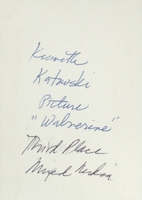 Kenneth
Katowski
Picture
"Wolverine"
Third Place
Mixed Media